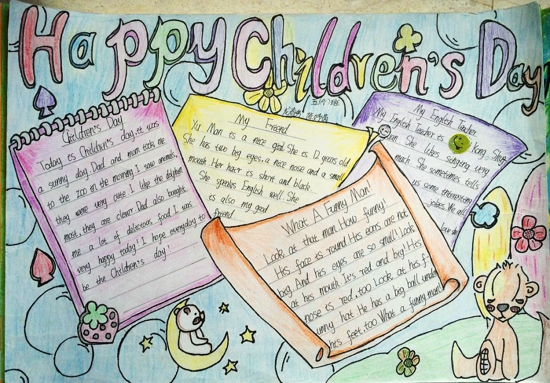 Happy Children's Day
Children's Day
Today is Children's day, it was
a sunny day. Dad and mom took me
to the zoo in the morning. I saw animals,
they were very cute. I like the
most, they are clever. Dad also bought
me a lot of delicious food. I was
very happy today! I hope everyday to
be the Children's day!
My Friend
Yu Man is a nice girl. She is 12 years old.
She has two big eyes, a nice nose and a small
mouth. Her hair is short and black.
She speaks English well. She
is also my good
friend.
My English Teacher
My English Teacher is Yang. She
She likes singing very
much. She sometimes tells
us some interesting
jokes. We all
love
What A Funny Man!
Look at that man. How funny!
His face is round. His ears are not
big. And his eyes are so small! Look
at his mouth. It's red and big! His
nose is red, too. Look at his f-
unny hat. He has a big ball under
his feet, too. What a funny man!